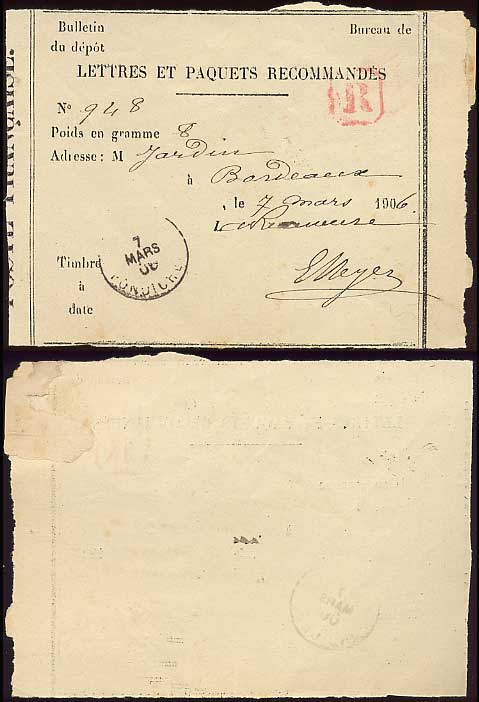 Bulletin
du dépôt
Bureau de
LETTRES ET PAQUETS RECOMMANDÉS
R
Nº 948
Poids en gramme 8
Adresse: M Jardin
à Bordeaux
, le 7 mars 1906.
L
E Meyer
Timbre
à
date
7
MARS
06
PONDICHE
FRANÇAISE.